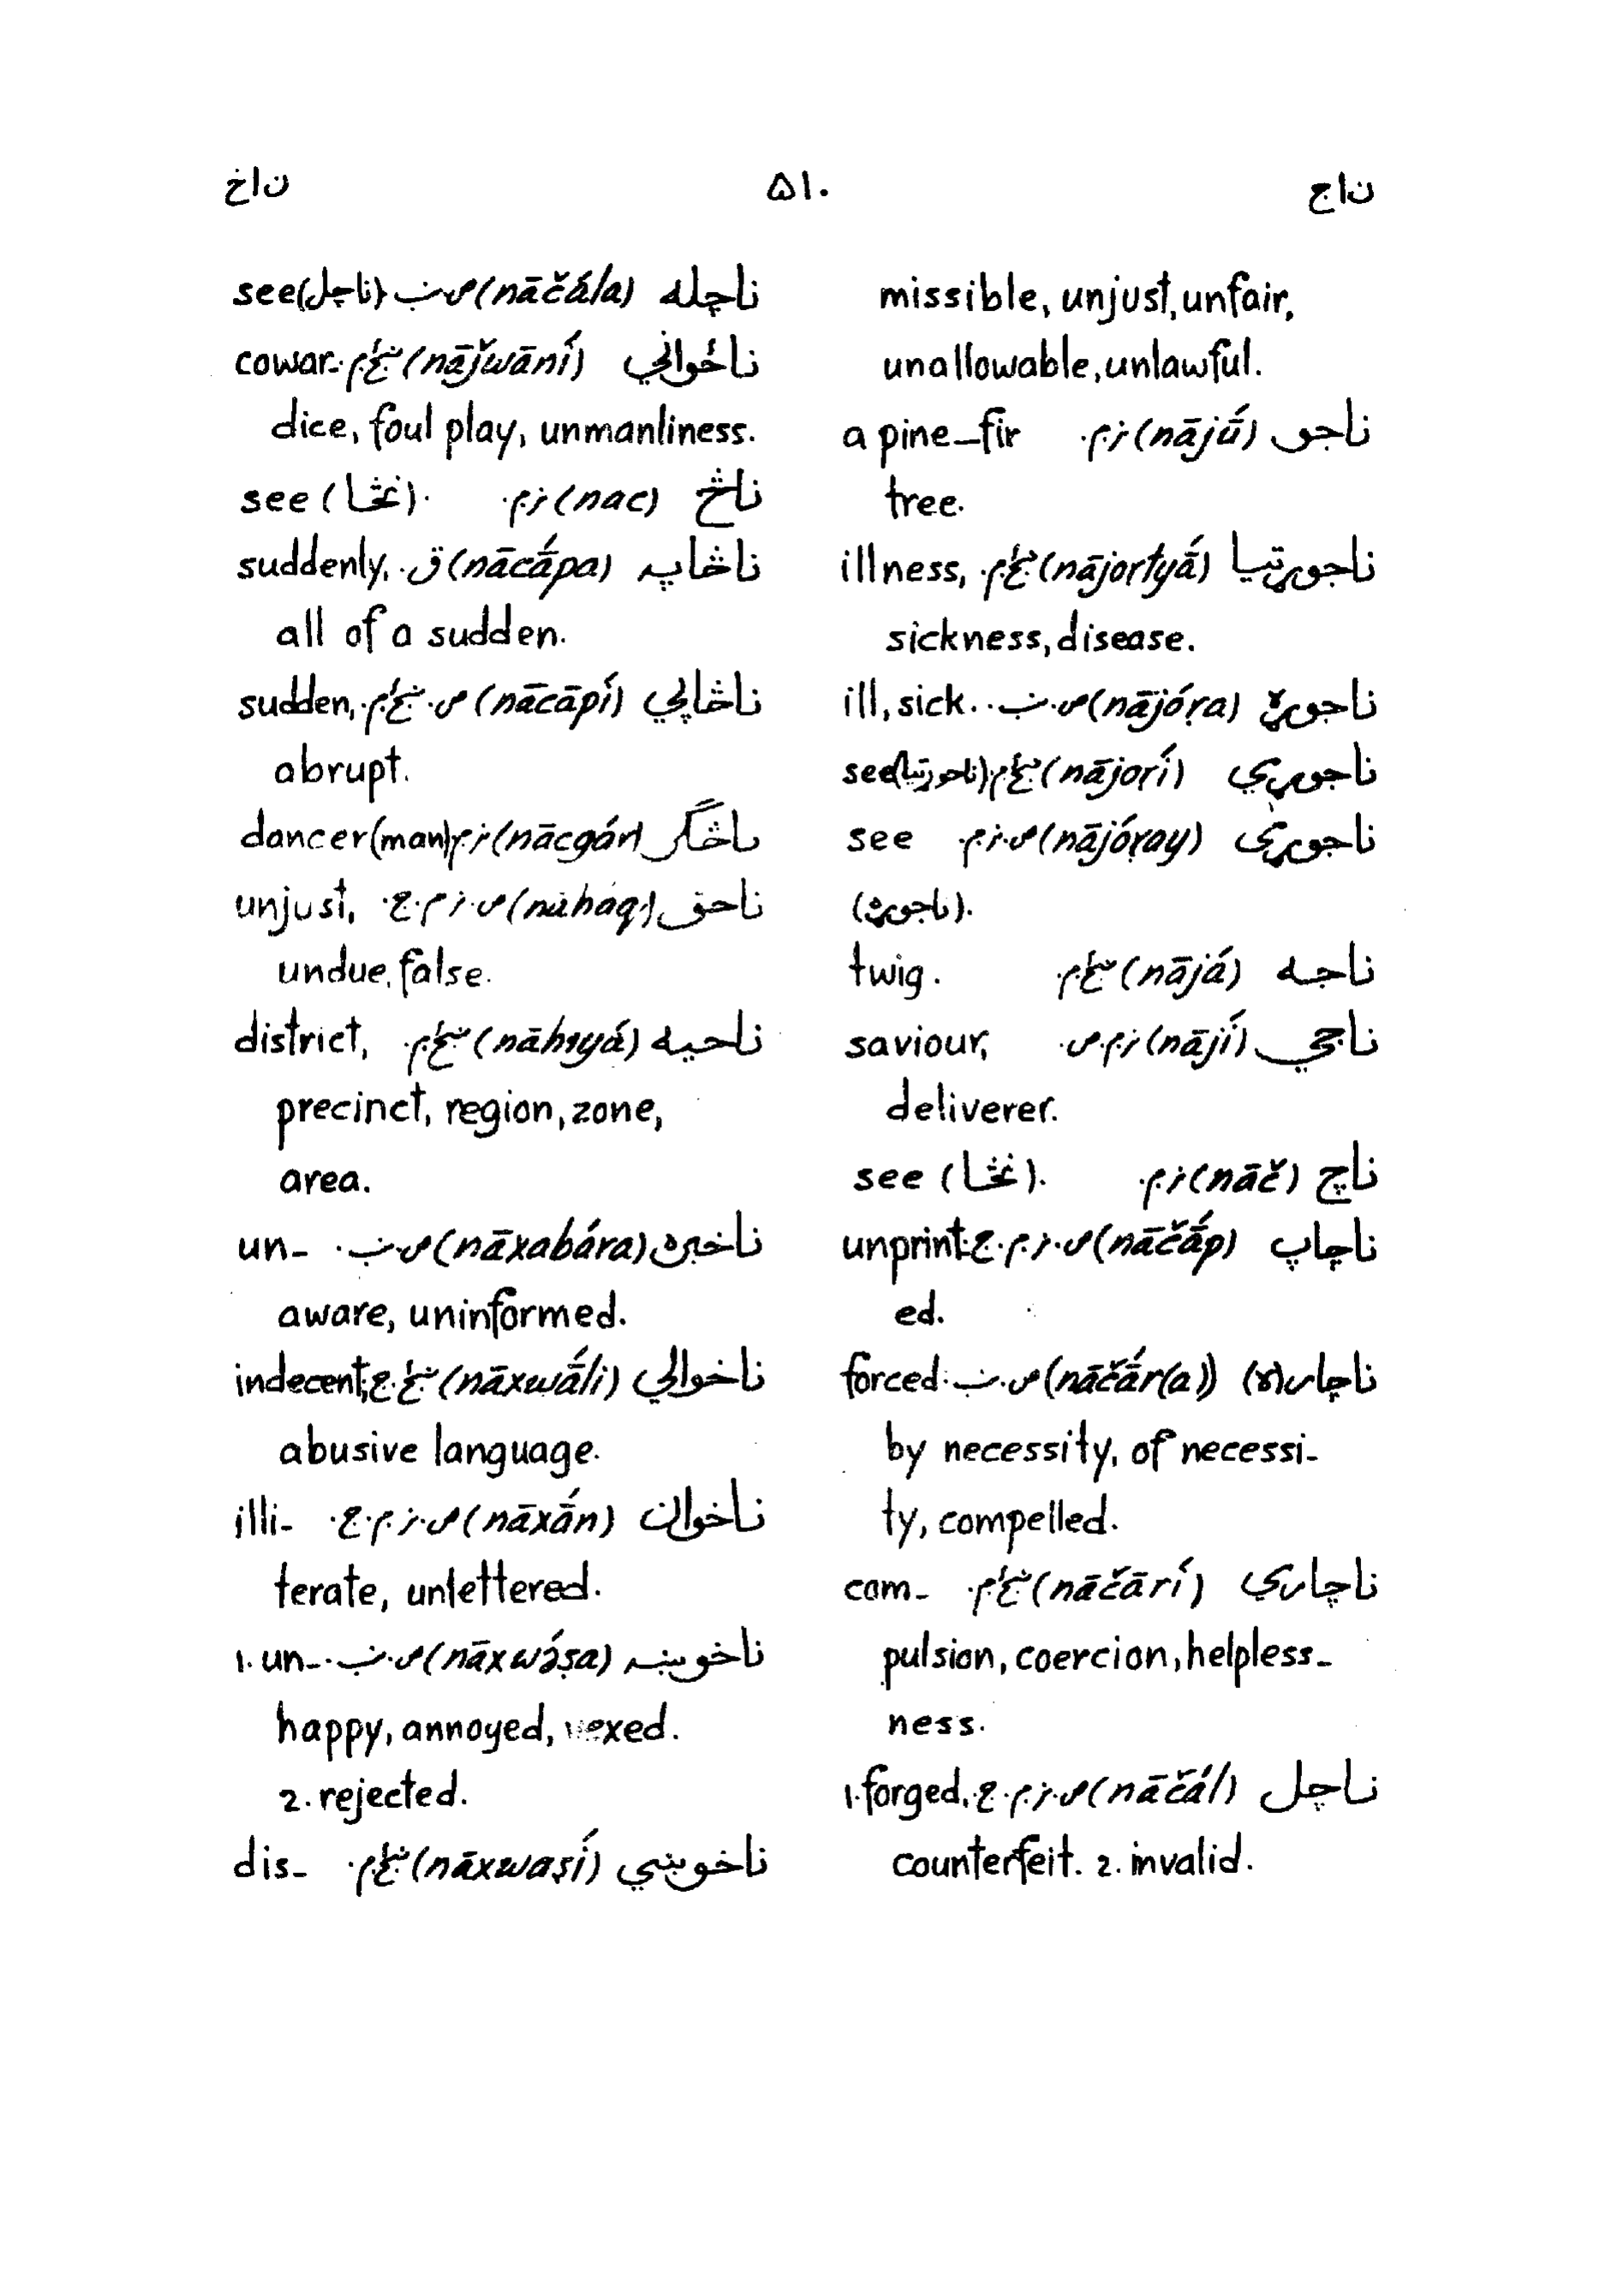 ناج ۵۱۰ ناخ
missible, unjust, unfair,
unallowable, unlawful.
ناجو (nājū́) ن.م. a pine-fir
tree.
ناجوړتيا (nājoṛtyā́) illness,
sickness, disease.
ناجوړه (nājóṛa) ص.ښ. ill, sick.
ناجوړي (nājoṛí) (ناجوړتيا) see
ناجوړی (nājóṛay) ص.ن.م. see
(ناجوړه).
ناجه (nājá) twig.
ناجي (nājí) ن.م.ص. saviour,
deliverer.
ناچ (nāč) ن.م. see (نڅا).
ناچاپ (nāčā́p) ص.ن.م.ج. unprint-
ed.
ناچار(ه) (nāčā́r(a)) ص.ښ. forced
by necessity, of necessi-
ty, compelled.
ناچاري (nāčārí) com-
pulsion, coercion, helpless-
ness.
ناچل (nāčál) ص.ن.م.ج. 1. forged,
counterfeit. 2. invalid.
ناچله (nāčála) ص.ښ. (ناچل) see
ناځواني (nāǰwāní) cowar-
dice, foul play, unmanliness.
ناڅ (nac) ن.م. see (نڅا).
ناڅاپه (nācā́pa) ق. suddenly,
all of a sudden.
ناڅاپي (nācāpí) sudden,
abrupt.
ناڅګر (nācgár) ن.م. dancer (man)
ناحق (nāháq) ص.ن.م.ج. unjust,
undue, false.
ناحيه (nāhiyá) district,
precinct, region, zone,
area.
ناخبره (nāxabára) ص.ښ. un-
aware, uninformed.
ناخوالي (nāxwā́li) indecent,
abusive language.
ناخوان (nāxā́n) ص.ن.م.ج. illi-
terate, unlettered.
ناخوښه (nāxwə́ṣa) ص.ښ. 1. un-
happy, annoyed, vexed.
2. rejected.
ناخوښي (nāxwaṣí) dis-